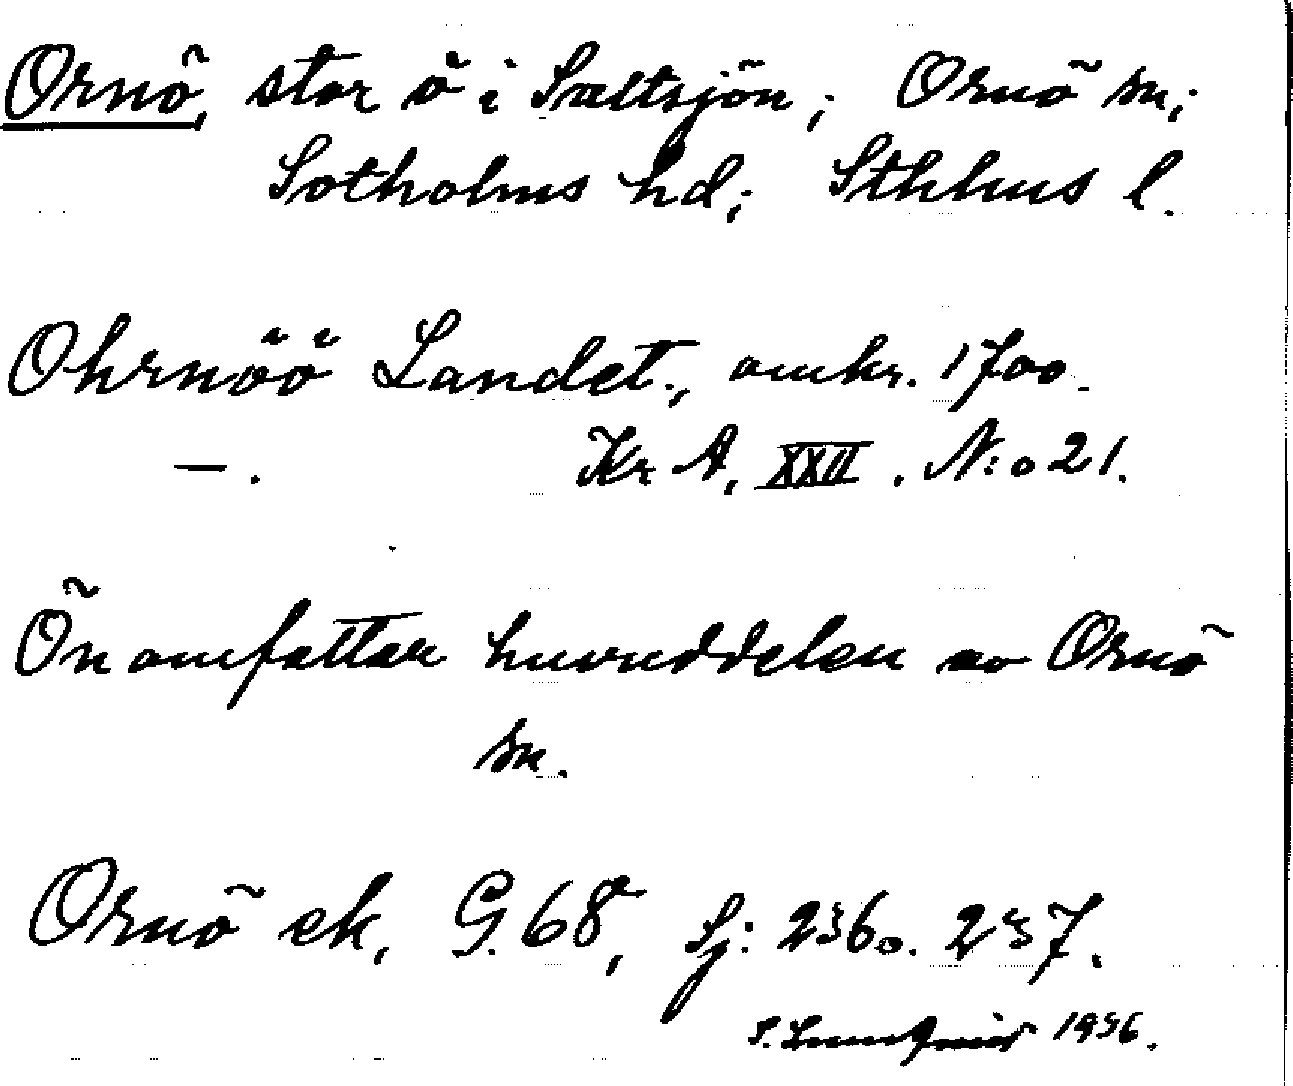 Ornö, stor ö i Saltsjön; Ornö sn;
Sotholms hd; Sthlms l.
Ohrnöö Landet., omkr. 1700.
—. Kr A, XXII. N:o 21.
Ön omfattar huvuddelen av Ornö
sn.
Ornö ek, G. 68, Sj: 236 o. 237.
S. Lundqvist 1936.